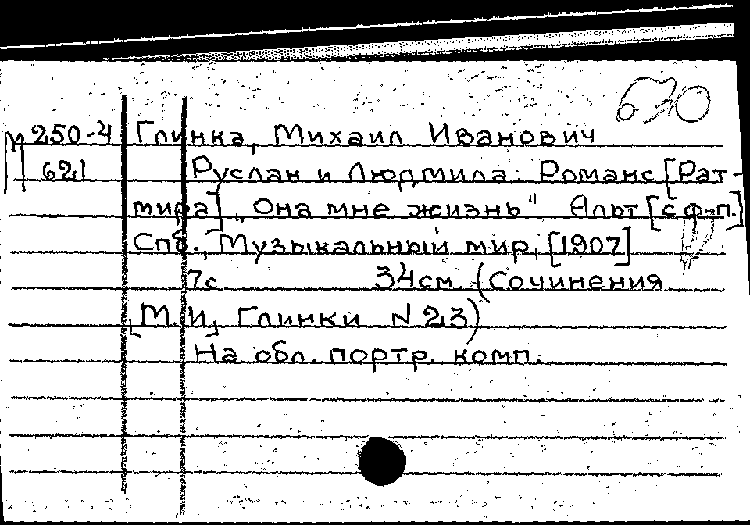 630
М 250-4 Глинка, Михаил Иванович
621 Руслан и Людмила: Романс [Рат-
мира] „Она мне жизнь" Альт [с ф-п.]
Спб., Музыкальный мир, [1907]
7с 34см (Сочинения
[М.И.] Глинки N 23)
На обл. портр. комп.